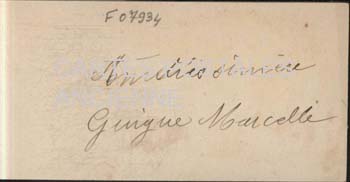 F 07934
Amitiés sincère
Guigue Marcelle